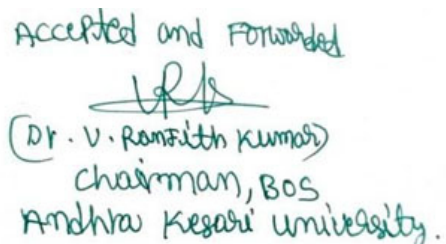 Accepted and Forwarded
(Dr. V. Ranjith Kumar)
Chairman, BOS
Andhra Kesari University.